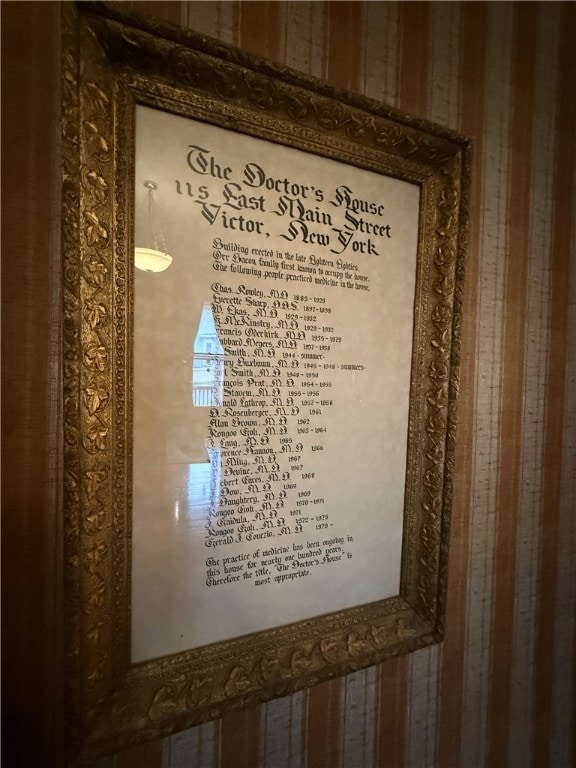 The Doctor's House
115 East Main Street
Victor, New York
Building erected in the late Eighteen Eighties.
Orr Bacon family first known to occupy the house.
The following people practiced medicine in the house.
Chas. Rowley, M.D. 1889-1929
Everette Sharp, D.D.S. 1897-1898
W. Ekas, M.D. 1929-1932
McKinstry, M.D. 1929-1932
Francis Oderkirk, M.D. 1935-1979
Hubbard Meyers, M.D. 1937-1938
Smith, M.D. 1944-summer-
Henry Buxbaum, M.D. 1945-1946-summers-
Smith, M.D. 1948-1950
François Prat, M.D. 1954-1955
Stavem, M.D. 1955-1956
Donald Lathrop, M.D. 1957-1958
D. Rosenberger, M.D. 1961
Alan Brown, M.D. 1962
Rongoo Goh, M.D. 1963-1964
Lang, M.D. 1965
Lawrence Hannon, M.D. 1966
Ming, M.D. 1967
Devine, M.D. 1967
Robert Cares, M.D. 1968
Dow, M.D. 1969
Daughtery, M.D. 1969
Rongoo Goh, M.D. 1970-1971
J. Gaidula, M.D. 1971
Rongoo Goh, M.D. 1972-1975
Gerald J. M.D. 1979-
The practice of medicine has been ongoing in
this house for nearly one hundred years,
therefore the title, "The Doctor's House" is
most appropriate.